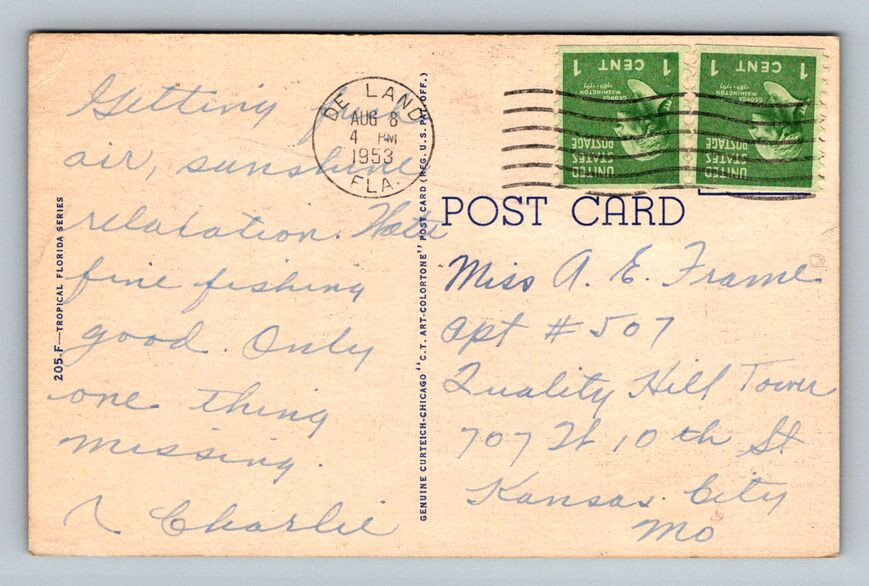 Getting fresh
air, sunshine
relaxation. Water
fine fishing
good. Only
one thing
missing.
Charlie
205-F—TROPICAL FLORIDA SERIES
GENUINE CURTEICH-CHICAGO "C.T. ART-COLORTONE" POST CARD (REG. U.S. PAT. OFF.)
DE LAND
AUG 8
4 PM
1953
FLA.
1 CENT 1
GEORGE WASHINGTON
1789-1797
UNITED
STATES
POSTAGE
1 CENT 1
GEORGE WASHINGTON
1789-1797
UNITED
STATES
POSTAGE
POST CARD
Miss A. E. Frame
Apt #507
Quality Hill Tower
707 W 10 th St
Kansas City
Mo